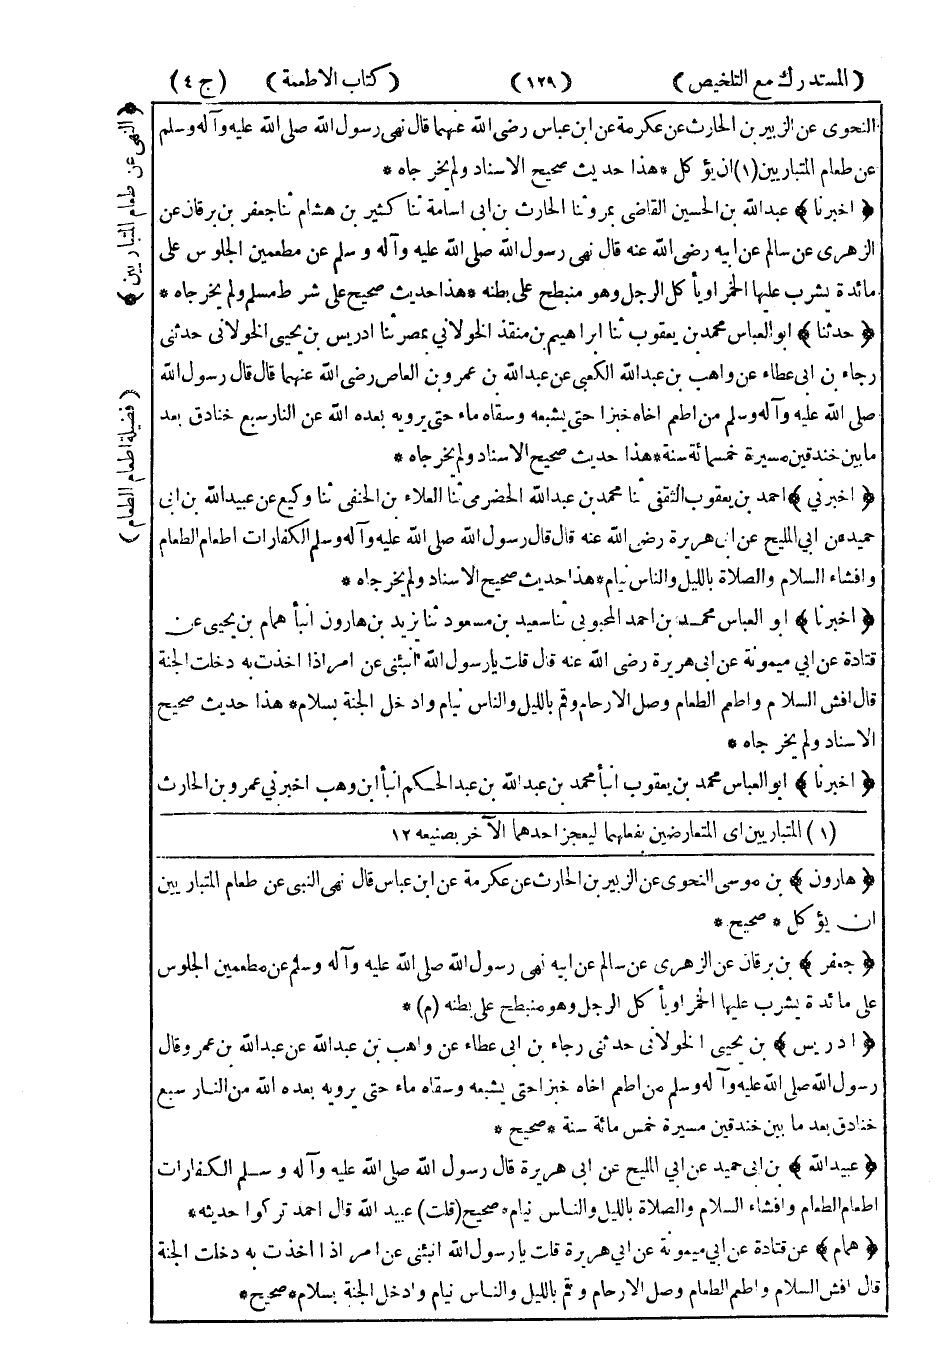 ( المستدرك مع التلخيص ) (١٢٩) ( كتاب الاطعمة ) ( ج ٤ )
النحوى عن الزبير بن الحارث عن عكرمة عن ابن عباس رضى الله عنهما قال نهى رسول الله صلى الله عليه وآله وسلم
عن طعام المتباريين (١) ان يؤكل * هذا حديث صحيح الاسناد ولم يخرجاه *
﴿ اخبرنا ﴾ عبدالله بن الحسين القاضى بمرو ثنا الحارث بن ابى اسامة ثنا كثير بن هشام ثنا جعفر بن برقان عن
الزهرى عن سالم عن ابيه رضى الله عنه قال نهى رسول الله صلى الله عليه وآله وسلم عن مطعمين الجلوس على
مائدة يشرب عليها الخمر او يأكل الرجل وهو منبطح على بطنه * هذا حديث صحيح على شرط مسلم ولم يخرجاه *
﴿ حدثنا ﴾ ابو العباس محمد بن يعقوب ثنا ابراهيم بن منقذ الخولانى بمصر ثنا ادريس بن يحيى الخولانى حدثنى
رجاء بن ابى عطاء عن واهب بن عبدالله الكعبى عن عبدالله بن عمرو بن العاص رضى الله عنهما قال قال رسول الله
صلى الله عليه وآله وسلم من اطعم اخاه خبزا حتى يشبعه وسقاه ماء حتى يرويه بعده الله عن النار سبع خنادق بعد
ما بين خندقين مسيرة خمسمائة سنة * هذا حديث صحيح الاسناد ولم يخرجاه *
﴿ اخبرنى ﴾ احمد بن يعقوب الثقفى ثنا محمد بن عبدالله الحضرمى ثنا العلاء بن الحنفى ثنا وكيع عن عبيدالله بن ابى
حميد عن ابى المليح عن ابى هريرة رضى الله عنه قال قال رسول الله صلى الله عليه وآله وسلم الكفارات اطعام الطعام
وافشاء السلام والصلاة بالليل والناس نيام * هذا حديث صحيح الاسناد ولم يخرجاه *
﴿ اخبرنا ﴾ ابو العباس محمد بن احمد المحبوبى ثنا سعيد بن مسعود ثنا يزيد بن هارون انبأ همام بن يحيى عن
قتادة عن ابى ميمونة عن ابى هريرة رضى الله عنه قال قلت يارسول الله انبئنى عن امر اذا اخذت به دخلت الجنة
قال افش السلام واطعم الطعام وصل الارحام وقم بالليل والناس نيام وادخل الجنة بسلام * هذا حديث صحيح
الاسناد ولم يخرجاه *
﴿ اخبرنا ﴾ ابو العباس محمد بن يعقوب انبأ محمد بن عبدالله بن عبدالحكم انبأ ابن وهب اخبرنى عمرو بن الحارث
(١) المتباريين اى المتعارضين بفعلهما ليعجز احدهما الآخر بصنيعه ١٢
﴿ هارون ﴾ بن موسى النحوى عن الزبير بن الحارث عن عكرمة عن ابن عباس قال نهى النبى عن طعام المتباريين
ان يؤكل * صحيح *
﴿ جعفر ﴾ بن برقان عن الزهرى عن سالم عن ابيه نهى رسول الله صلى الله عليه وآله وسلم عن مطعمين الجلوس
على مائدة يشرب عليها الخمر او يأكل الرجل وهو منبطح على بطنه (م) *
﴿ ادريس ﴾ بن يحيى الخولانى حدثنى رجاء بن ابى عطاء عن واهب بن عبدالله عن عبدالله بن عمرو قال
رسول الله صلى الله عليه وآله وسلم من اطعم اخاه خبزا حتى يشبعه وسقاه ماء حتى يرويه بعده الله من النار سبع
خنادق بعد ما بين خندقين مسيرة خمس مائة سنة * صحيح *
﴿ عبيدالله ﴾ بن ابى حميد عن ابى المليح عن ابى هريرة قال رسول الله صلى الله عليه وآله وسلم الكفارات
اطعام الطعام وافشاء السلام والصلاة بالليل والناس نيام * صحيح (قلت) عبيد الله قال احمد تركوا حديثه *
﴿ همام ﴾ عن قتادة عن ابى ميمونة عن ابى هريرة قلت يارسول الله انبئنى عن امر اذا اخذت به دخلت الجنة
قال افش السلام واطعم الطعام وصل الارحام وقم بالليل والناس نيام وادخل الجنة بسلام * صحيح *
﴿ النهى عن طعام المتباريين ﴾
( فضيلة اطعام الطعام )